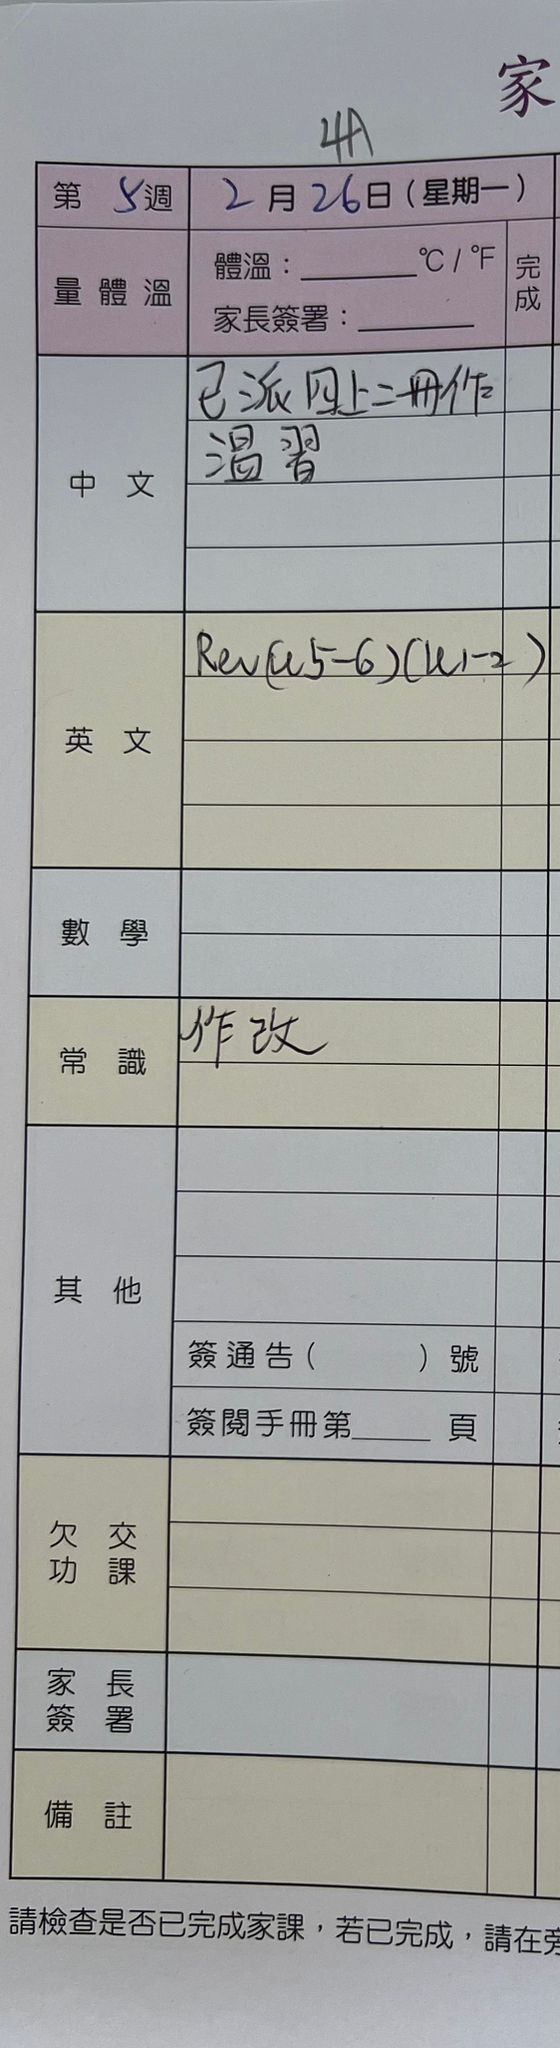 家
4A
第 5 週 2 月 26 日 (星期一)
量體溫 體溫：______°C / °F 完成
家長簽署：______
中文 已派四上二冊作
溫習
英文 Rev(u5-6)(u1-2)
數學
常識 作改
其他
簽通告( )號
簽閱手冊第____頁
欠交
功課
家長
簽署
備註
請檢查是否已完成家課，若已完成，請在旁